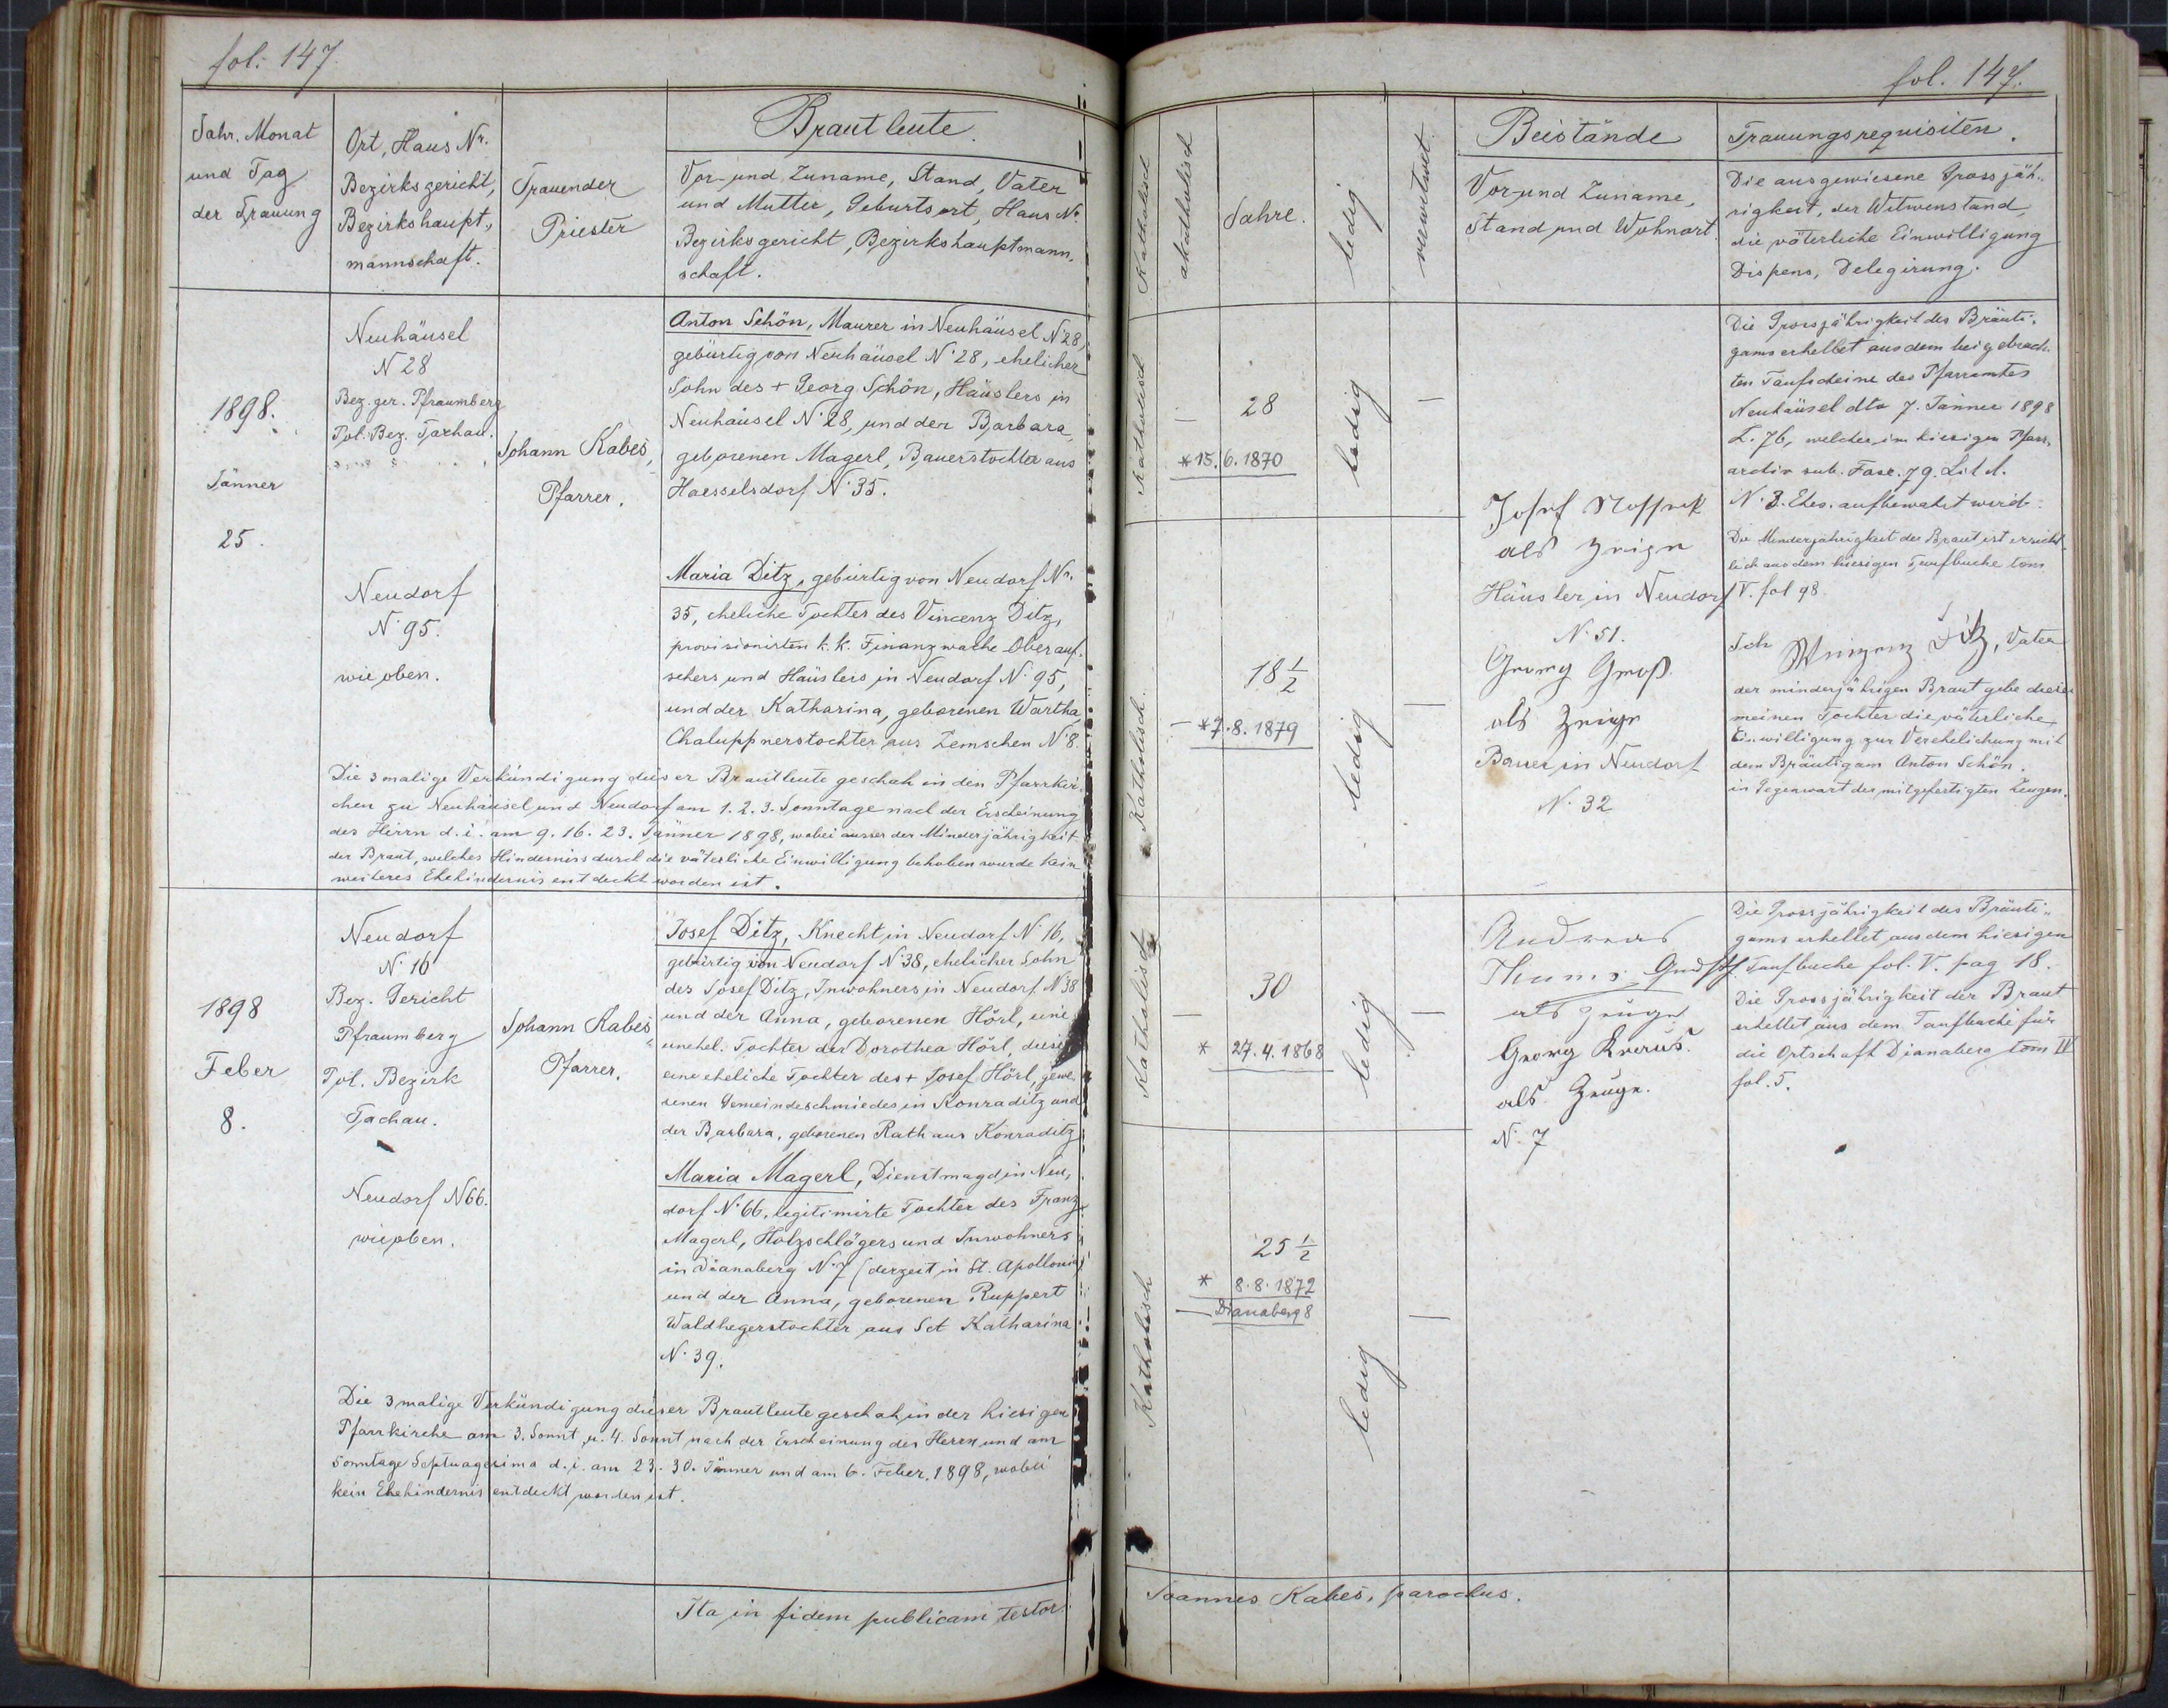 fol. 147.
Jahr, Monat
und Tag
der Trauung
Ort, Haus Nr.
Bezirksgericht,
Bezirkshaupt-
mannschaft.
Trauender
Priester
Brautleute.
Vor- und Zuname, Stand, Vater
und Mutter, Geburtsort, Haus Nr.
Bezirksgericht, Bezirkshauptmann-
schaft.
1898.
Jänner
25.
Neuhäusel
N 28
Bez. ger. Pfraumberg
Pol. Bez. Tachau.
Johann Kabeš,
Pfarrer.
Anton Schön, Maurer in Neuhäusel N. 28,
gebürtig von Neuhäusel N. 28, ehelicher
Sohn des + Georg Schön, Häuslers in
Neuhäusel N. 28, und der Barbara,
geborenen Magerl, Bauerstochter aus
Haesselsdorf N. 35.
Neudorf
N. 95.
wie oben.
Maria Ditz, gebürtig von Neudorf Nr.
35, eheliche Tochter des Vincenz Ditz,
provisionirten k. k. Finanzwache Oberauf-
sehers und Häuslers in Neudorf N. 95,
und der Katharina, geborenen Wartha,
Chaluppnerstochter aus Zemschen N. 8.
Die 3 malige Verkündigung dieser Brautleute geschah in den Pfarrkir-
chen zu Neuhäusel und Neudorf am 1. 2. 3. Sonntage nach der Erscheinung
des Herrn d. i. am 9. 16. 23. Jänner 1898, wobei ausser der Minderjährigkeit
der Braut, welches Hinderniss durch die väterliche Einwilligung behoben wurde kein
weiteres Ehehindernis entdeckt worden ist.
1898
Feber
8.
Neudorf
N. 16
Bez. Gericht
Pfraumberg
Pol. Bezirk
Tachau.
Johann Kabeš
Pfarrer.
Josef Ditz, Knecht in Neudorf N. 16,
gebürtig von Neudorf N. 38, ehelicher Sohn
des Josef Ditz, Inwohners in Neudorf N. 38
und der Anna, geborenen Hörl, eine
unehel. Tochter der Dorothea Hörl, diese
eine eheliche Tochter des + Josef Hörl, gewe-
senen Gemeindeschmiedes in Konraditz und
der Barbara, geborenen Rath aus Konraditz
Neudorf N 66.
wie oben.
Maria Magerl, Dienstmagd in Neu-
dorf N. 66, legitimirte Tochter des Franz
Magerl, Holzschlägers und Inwohners
in Dianaberg N. 7 (derzeit in St. Apollonia)
und der Anna, geborenen Ruppert
Waldhegerstochter aus Sct Katharina
N. 39.
Die 3 malige Verkündigung dieser Brautleute geschah in der hiesigen
Pfarrkirche am 3. Sonnt. u. 4. Sonnt nach der Erscheinung des Herrn und am
Sonntage Septuagesima d. i. am 23. 30. Jänner und am 6. Feber. 1898, wobei
kein Ehehindernis entdeckt worden ist.
Ita in fidem publicam testor.
fol. 147.
Katholisch
akatholisch
Jahre.
ledig
verwitwet.
Beistände
Vor- und Zuname,
Stand und Wohnort.
Trauungsrequisiten.
Die ausgewiesene Grossjäh-
rigkeit, der Witwenstand,
die väterliche Einwilligung
Dispens, Delegirung.
Katholisch
28
* 15. 6. 1870
ledig
Die Grossjährigkeit des Bräuti-
gams erhellet aus dem beigebrach-
ten Taufscheine des Pfarramtes
Neuhäusel dto 7. Jänner 1898
Z. 76, welcher im hiesigen Pfarr-
archiv sub. Fasc. 79. Lit d.
N. 3. Ehes. aufbewahrt wird.
Die Minderjährigkeit der Braut ist ersicht-
lich aus dem hiesigen Taufbuche tom
V. fol 98.
Josef
als Zeuge
Häusler in Neudorf
N. 51.
Georg Groß
als Zeuge
Bauer in Neudorf
N. 32
Katholisch
18 1/2
* 7. 8. 1879
ledig
Ich Winzenz Ditz, Vater
der minderjährigen Braut gebe dieser
meinen Tochter die väterliche
Einwilligung zur Verehelichung mit
dem Bräutigam Anton Schön.
in Gegenwart der mitgefertigten Zeugen.
Katholisch
30
* 27. 4. 1868
ledig
Andreas
als Zeuge
Georg
als Zeuge.
N. 7
Die Grossjährigkeit des Bräuti-
gams erhellet aus dem hiesigen
Taufbuche fol. V. pag 18.
Die Grossjährigkeit der Braut
erhellet aus dem Taufbuche für
die Ortschaft Dianaberg tom IV
fol. 5.
Katholisch
25 1/2
* 8. 8. 1872
Dianaberg 8
ledig
Joannes Kabeš, parochus.